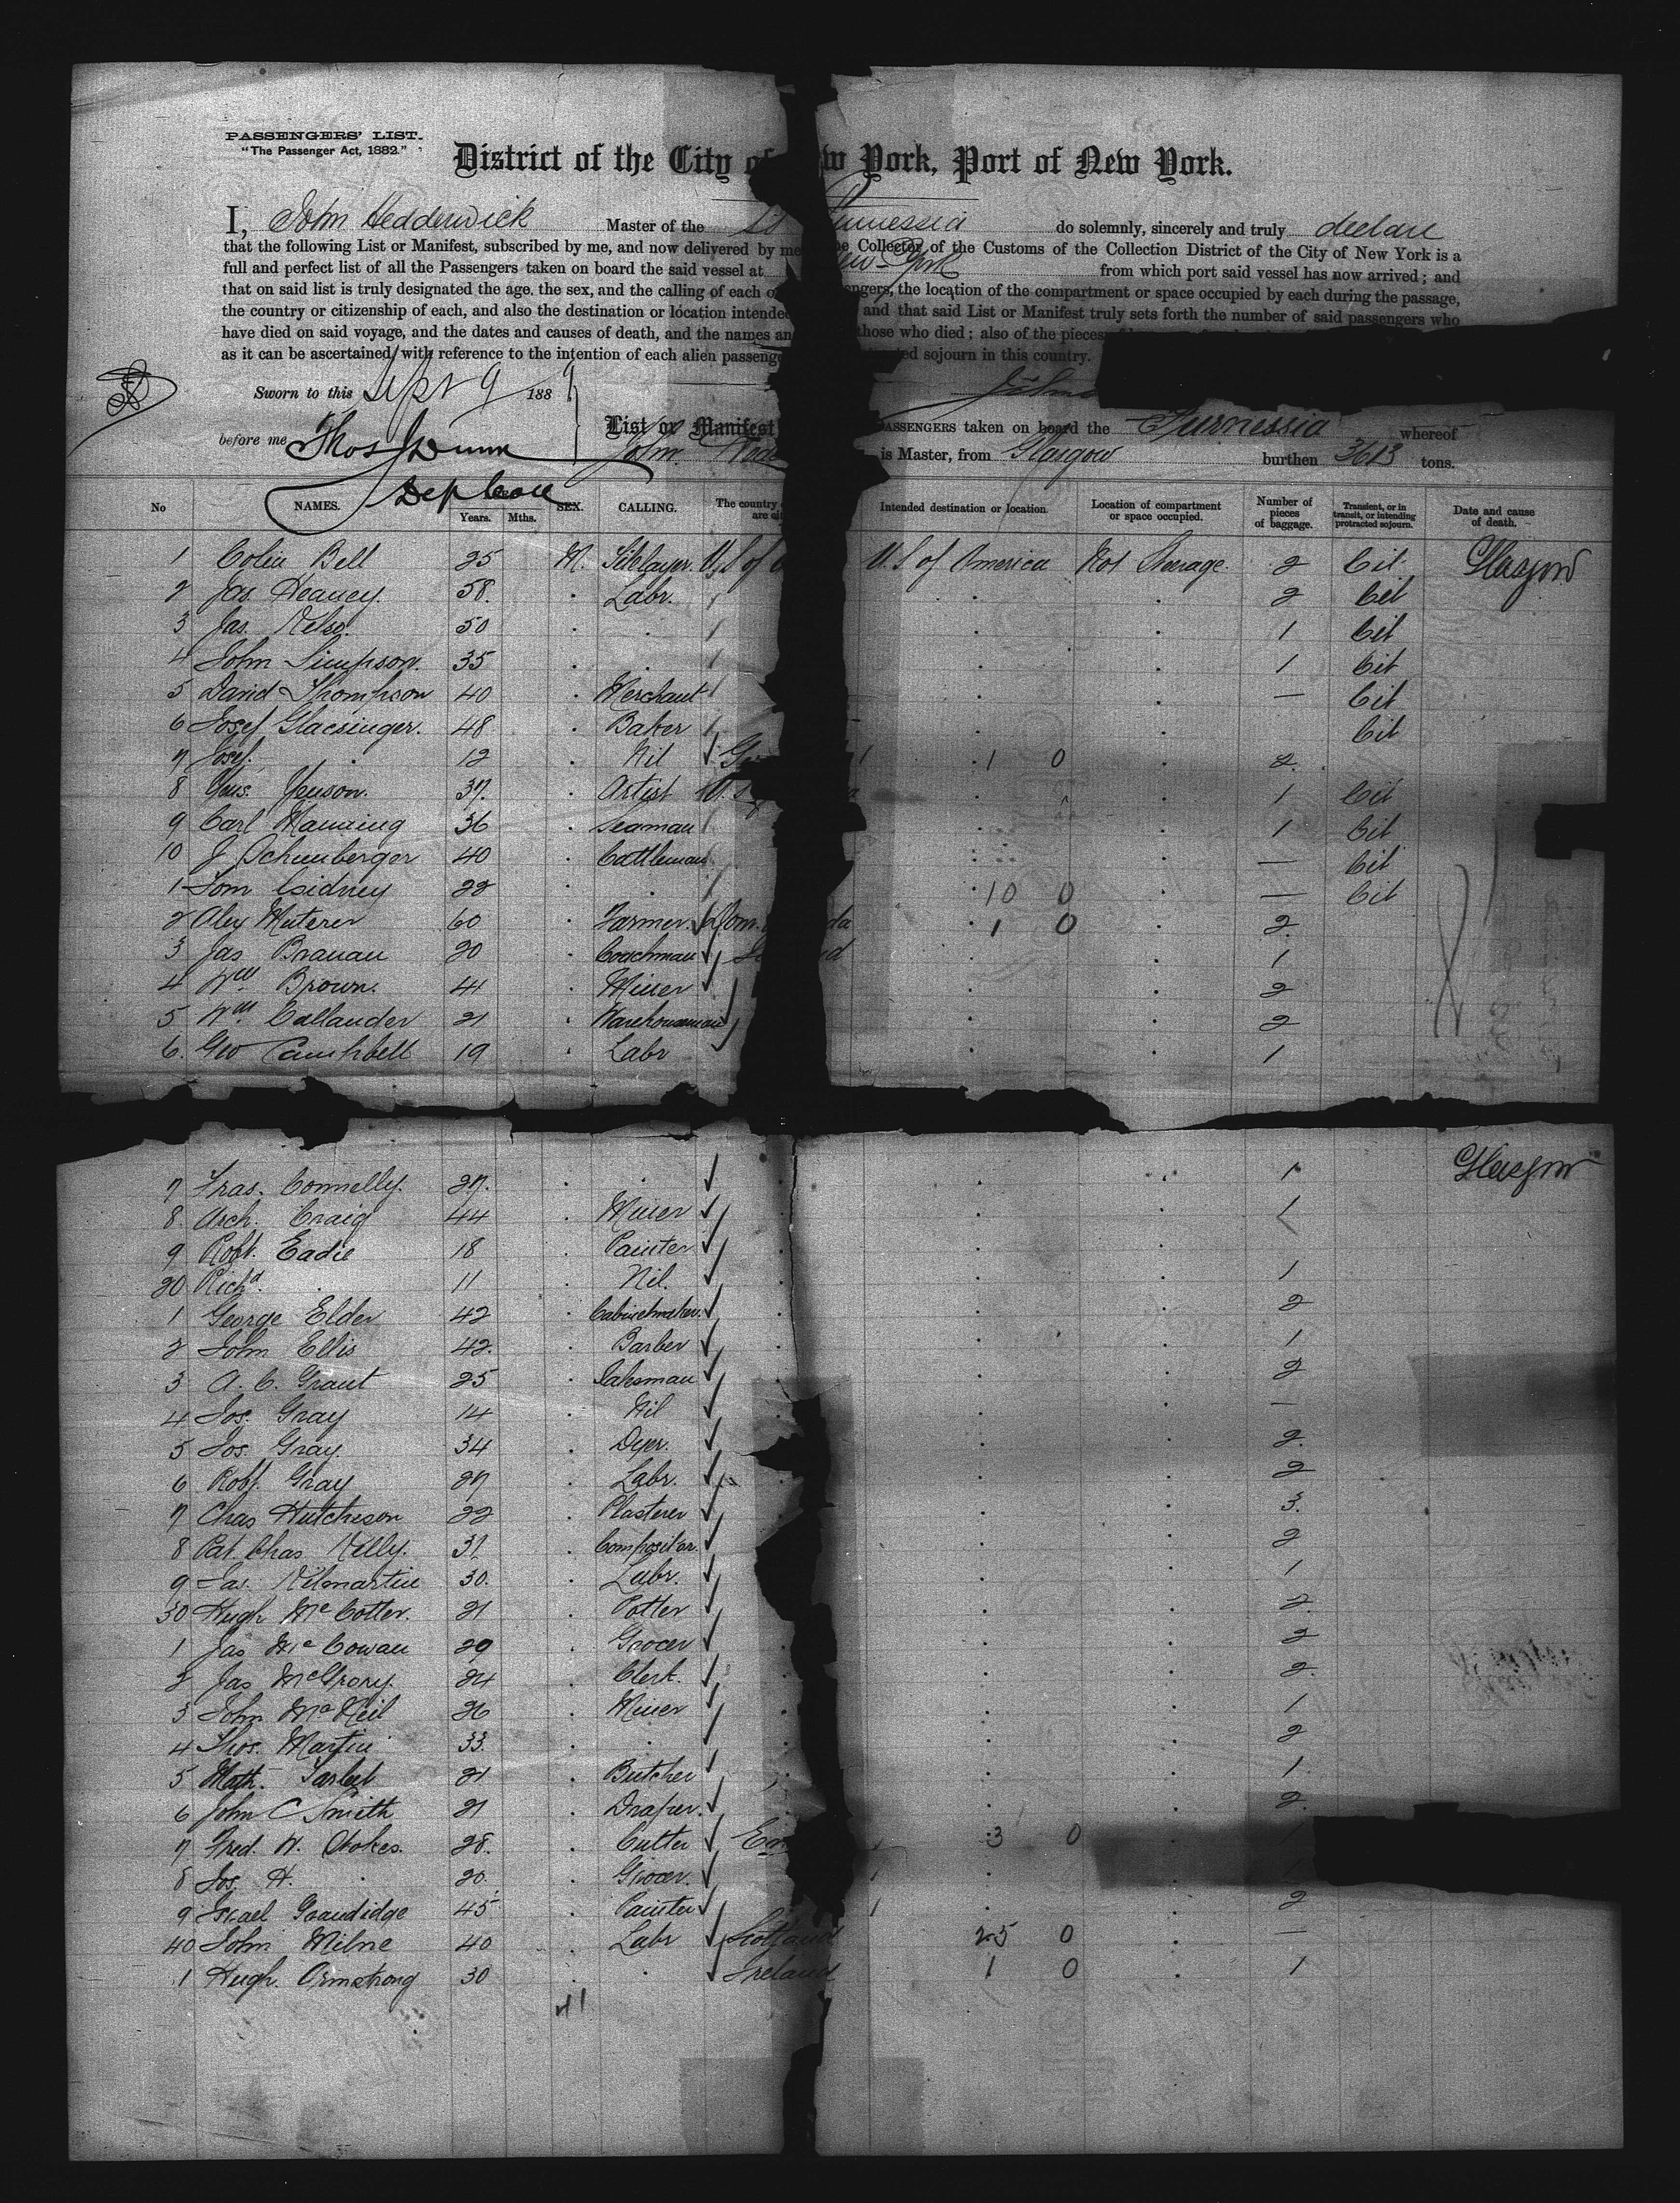 PASSENGERS' LIST.
"The Passenger Act, 1882."
District of the City of w York, Port of New York.
I, John Hedderwick Master of the SS urnessia do solemnly, sincerely and truly declare
that the following List or Manifest, subscribed by me, and now delivered by me e Collector of the Customs of the Collection District of the City of New York is a
full and perfect list of all the Passengers taken on board the said vessel at New-York from which port said vessel has now arrived; and
that on said list is truly designated the age, the sex, and the calling of each o engers, the location of the compartment or space occupied by each during the passage,
the country or citizenship of each, and also the destination or location intended and that said List or Manifest truly sets forth the number of said passengers who
have died on said voyage, and the dates and causes of death, and the names an those who died; also of the pieces
as it can be ascertained, with reference to the intention of each alien passenge ed sojourn in this country.
Sworn to this Sept 9 1889 John
before me Thos J Dunn List or Manifest PASSENGERS taken on board the Furnessia whereof
John Hede is Master, from Glasgow burthen 3613 tons.
Dep Coll
No NAMES. Years. Mths. SEX. CALLING. The country are ci Intended destination or location. Location of compartment or space occupied. Number of pieces of baggage. Transient, or in transit, or intending protracted sojourn. Date and cause of death.
1 Colin Bell 25 M. U.S of U.S of America Not Steerage. 2 Cit. Glasgow
2 Jas. Heaney. 58. . Labr. . . 2 Cit
3 Jas. Kelso. 50 . . . . 1 Cit
4 John Simpson. 35 . . . . 1 Cit
5 David Thompson 40 . Merchant . . — Cit
6 Josef Glaesinger. 48 . Baker . . Cit
7 Josef. . 12 . Nil ✓ Ge 1 0 2.
8 37. . Artist U.S . . 1 Cit
9 Carl Manning 36 . Seaman . . 1 Cit
10 J 40 . Cattleman . . — Cit
1 Tom 22 . . 10 0 . — Cit
2 Alex 60 . Farmer. ✓ Dom. da 1 0 . 2.
3 Jas Branan 20 . Coachman ✓ d . . 1
4 Wm. Brown. 41 . Miner ✓ . . 2
5 Wm Callander 21 . Warehouseman ✓ . . 2
6. Geo Campbell 19 . Labr . . 1
7 Fras. Connelly. 27. . . ✓ . . 1 Glasgow
8 Arch. Craig 44 . Miner ✓ . . 1
9 Robt. Eadie 18 . Painter ✓ . .
20 Richd . 11 . Nil. ✓ . . 1
1 George Elder 42 . Cabinetmaker. ✓ . . 2
2 John Ellis 42. . Barber ✓ . . 1
3 A. C. Grant 25 . Salesman ✓ . . 2
4 Jos. Gray 14 . Nil ✓ . . —
5 Jos. Gray. 34 . Dyer. ✓ . . 2.
6 Robt. Gray 27 . Labr. ✓ . . 2
7 Chas Hutcheson 22 . Plasterer ✓ . . 3.
8 Pat. Chas Kelly. 31. . Compositor. ✓ . . 2
9 Jas. Kilmartin 30. . Labr. ✓ . . 1
30 Hugh McCotter. 21 . Potter ✓ . . 2.
1 Jas McCowan 29 . Grocer ✓ . . 2
2 Jas McCrory. 24 . Clerk. ✓ . . 2.
3 John McNeil 26 . Miner ✓ . . 1
4 Thos. Martin 33. . . ✓ . . 2
5 Math. Tarbet 21 . Butcher ✓ . . 1.
6 John C Smith 21 . Draper. ✓ . . 2.
7 Fred. W. Stokes. 28. . Cutter ✓ En 3 0 . 1
8 Jos. H. . 20. . Grocer. ✓ . . 1
9 Israel Grandidge 45 . Painter ✓ . . 2
40 John Milne 40 . Labr ✓ Scotland 25 0 . —
1 Hugh. Armstrong 30 . . ✓ Ireland 1 0 . 1
41